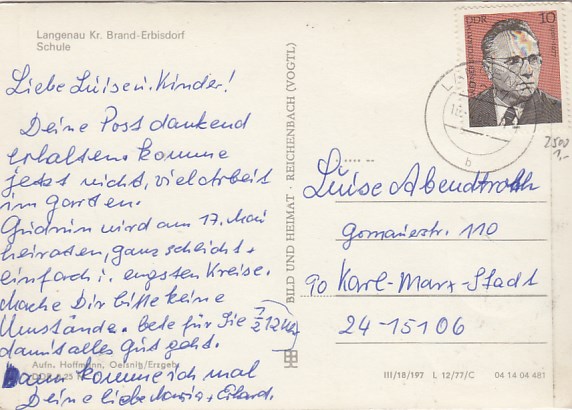 Langenau Kr. Brand-Erbisdorf
Schule
Liebe Luise u. Kinder!
Deine Post dankend
erhalten komme
jetzt nicht, viel arbeit
im garten.
Gudrun wird am 17. Mai
heiraten, ganz schlicht +
einfach i. engsten Kreise.
Mache Dir bitte keine
Umstände. bete für Sie 1/2 12 Uhr
damit alles Gut geht.
Aufn. Hoffmann, Oelsnitz/Erzgeb.
Dann komme ich mal
Deine liebe + Erhard.
BILD UND HEIMAT · REICHENBACH (VOGTL)
DDR 10
2500
1,-
b
Luise Abendtroth
Gornauerstr. 110
90 Karl-Marx-Stadt
24-15106
III/18/197 L 12/77/C 04 14 04 481